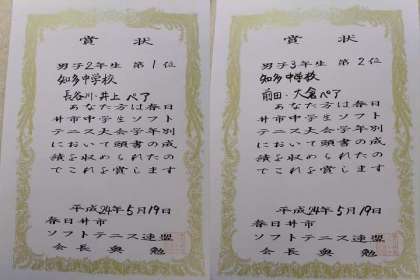 賞状
男子2年生 第1位
知多中学校
長谷川・井上ペア
あなた方は春日
井市中学生ソフト
テニス大会学年別
において頭書の成
績を収められたの
でこれを賞します
平成24年5月19日
春日井市
ソフトテニス連盟
会長 奥 勉
賞状
男子3年生 第2位
知多中学校
前田・大倉ペア
あなた方は春日
井市中学生ソフト
テニス大会学年別
において頭書の成
績を収められたの
でこれを賞します
平成24年5月19日
春日井市
ソフトテニス連盟
会長 奥 勉